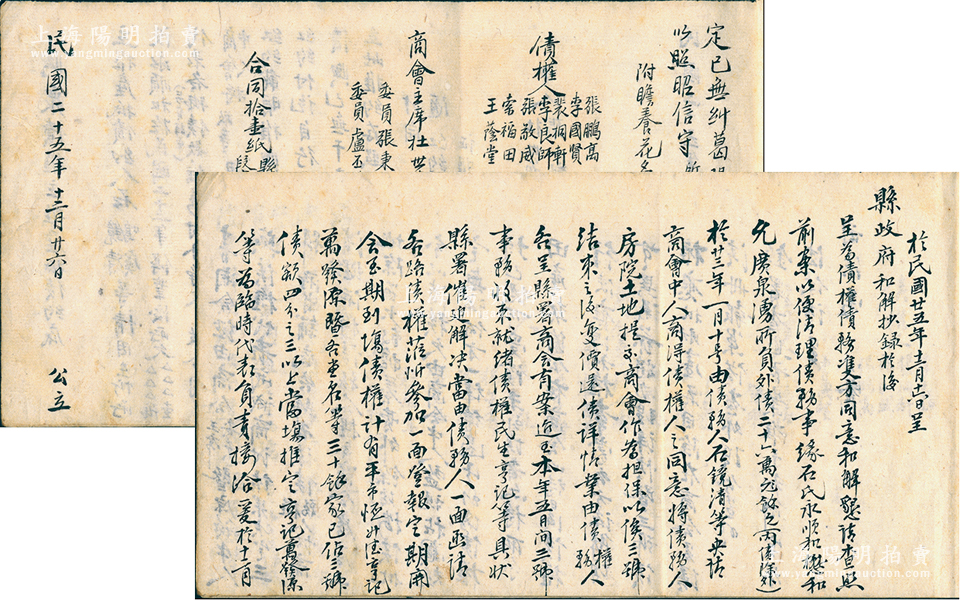 於民國廿五年十二月十六日呈
縣政府和解抄錄於後
呈為債權債務雙方同意和解懇請查照
前案以便清理債務事緣石氏永順和樾和
允廣泉湧所負外債二十六萬元餘之
於廿三年一月十號由債務人石鏡清等央請
商會中人商得債權人之同意將債務人
房院土地提交商會作為擔保以俟三號
結束之後變價還債詳情業由債權債務人
各呈縣署商會有案近至本年五月間三號
事務收束就緒債權民生亨記等具狀
縣署催迫解決當由債務人一面函請
各路債權蒞忻參加一面登報定期開
會至期到場債權計有平市恆德亨記
萬發源晉等三十餘家已佔三號
債額四分之三以上當場推定亨記萬發源
等為臨時代表負責接洽爰於十一月
定已無糾葛
以照昭信守
附贍養花名
債權人
張鵬高
李國賢
裴桐軒
李良師
張敬威
常福田
王蔭堂
商會主席杜
委員張東
委員盧丕
合同拾壹紙縣
民國二十五年十二月廿六日 公立
上海陽明拍賣
yangmingauction.com
上海陽明拍賣
www.yangmingauction.com